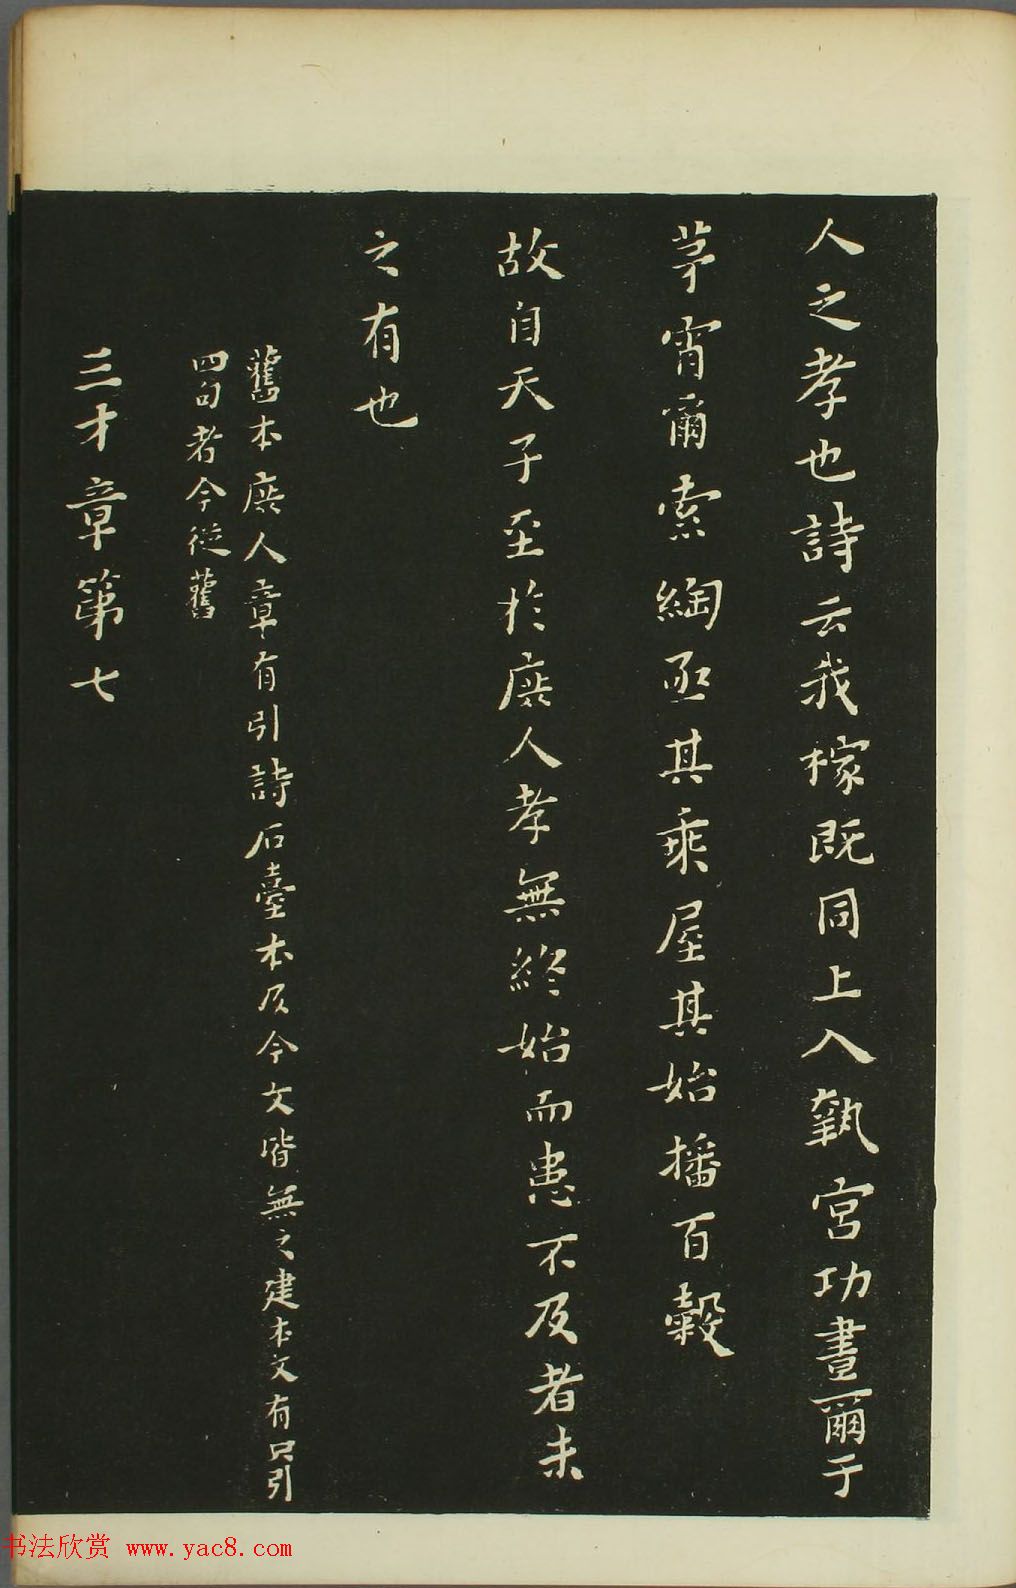 人之孝也詩云我稼既同上入執宮功晝爾于
茅宵爾索綯亟其乘屋其始播百穀
故自天子至於庶人孝無終始而患不及者未
之有也
舊本庶人章有引詩石臺本及今文皆無之建本文有只引
四句者今從舊
三才章第七
书法欣赏 www.yac8.com